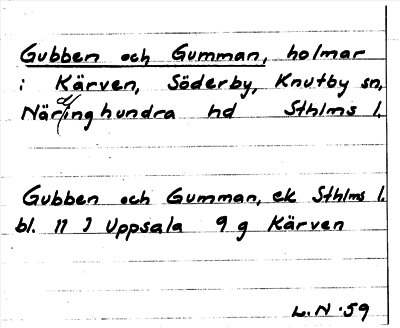 Gubben och Gumman, holmar
i Kärven, Söderby, Knutby sn,
Närdinghundra hd Sthlms l.
Gubben och Gumman, ek Sthlms l.
bl. 11 I Uppsala 9 g Kärven
L.N.59